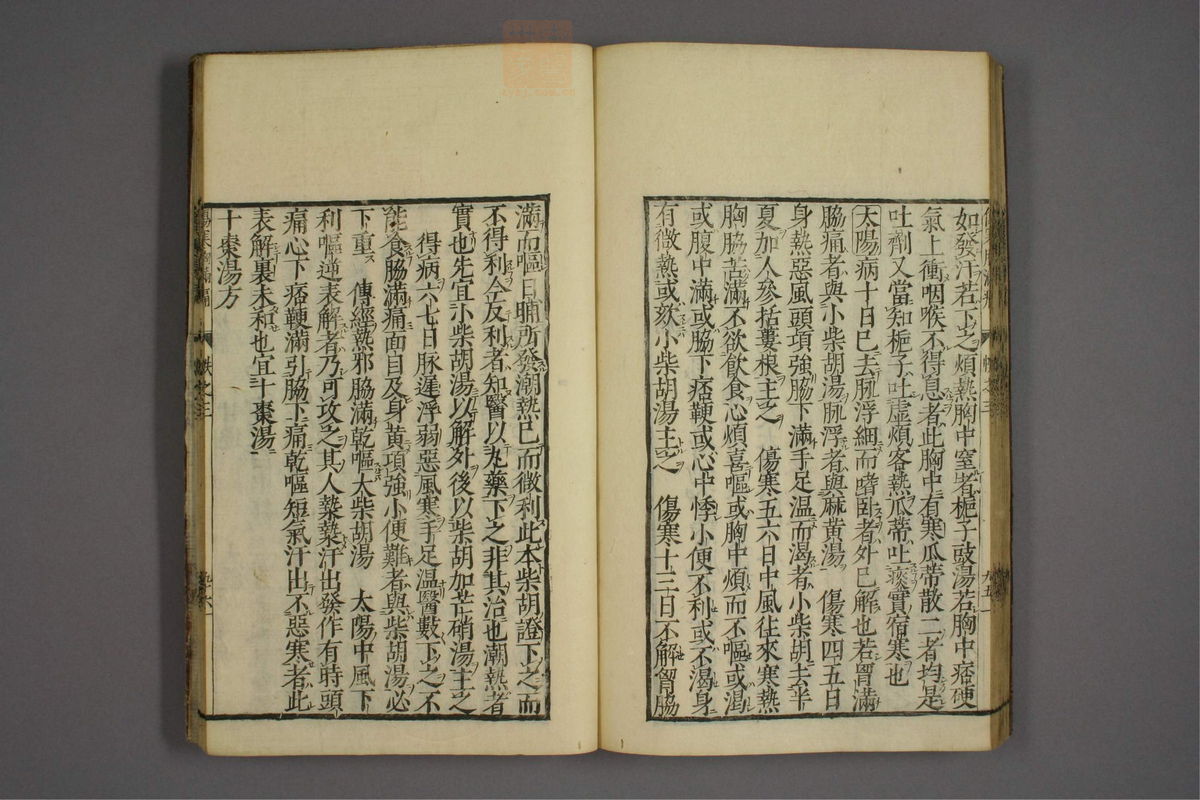 如發汗若下之煩熱胸中窒者梔子豉湯若胸中痞硬
氣上衝咽喉不得息者此胸中有寒瓜蒂散二者均是
吐劑又當知梔子吐虛煩客熱瓜蒂吐痰實宿寒也
太陽病十日已去脉浮細而嗜卧者外已解也若胷滿
脇痛者與小柴胡湯脉浮者與麻黃湯 傷寒四五日
身熱惡風頸項強脇下滿手足温而渴者小柴胡去半
夏加人參括蔞根主之 傷寒五六日中風往來寒熱
胸脇苦滿不欲飲食心煩喜嘔或胸中煩而不嘔或渴
或腹中滿或脇下痞鞕或心中悸小便不利或不渴身
有微熱或欬小柴胡湯主之 傷寒十三日不解胷脇
滿而嘔日晡所發潮熱已而微利此本柴胡證下之而
不得利今反利者知醫以丸藥下之非其治也潮熱者
實也先宜小柴胡湯以解外後以柴胡加芒硝湯主之
得病六七日脉遲浮弱惡風寒手足温醫數下之不
能食脇滿痛面目及身黃項強小便難者與柴胡湯必
下重 傳經熱邪脇滿乾嘔大柴胡湯 太陽中風下
利嘔逆表解者乃可攻之其人漐漐汗出發作有時頭
痛心下痞鞕滿引脇下痛乾嘔短氣汗出不惡寒者此
表解裏未和也宜十棗湯
十棗湯方